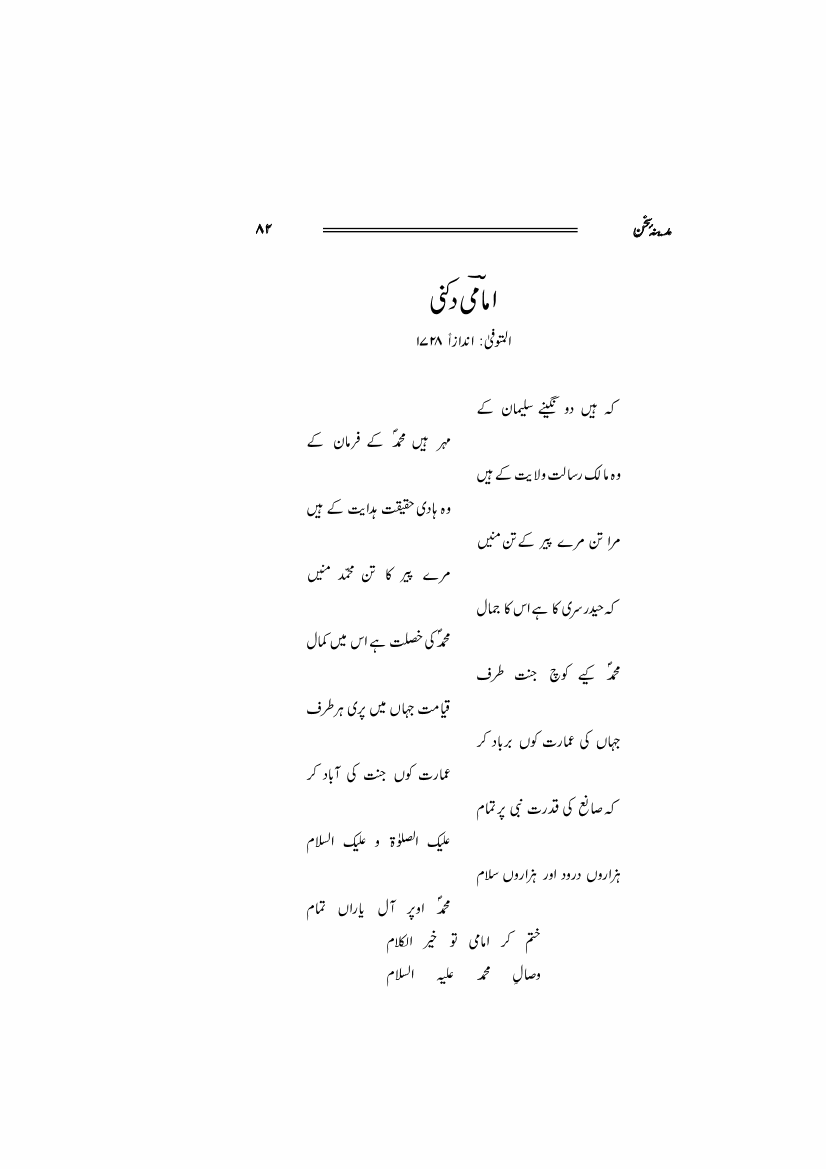 مدینہ سخن ۸۲
امامی دکنی
المتوفیٰ: اندازاً ۱۷۲۸
کہ ہیں دو نگینے سلیمان کے
مہر ہیں محمدؐ کے فرمان کے
وہ مالک رسالت ولایت کے ہیں
وہ ہادی حقیقت ہدایت کے ہیں
مرا تن مرے پیر کے تن منیں
مرے پیر کا تن محمّد منیں
کہ حیدر سری کا ہے اس کا جمال
محمدؐ کی خصلت ہے اس میں کمال
محمدؐ کیے کوچ جنت طرف
قیامت جہاں میں پری ہر طرف
جہاں کی عمارت کوں برباد کر
عمارت کوں جنت کی آباد کر
کہ صانع کی قدرت نبی پر تمام
علیک الصلوٰۃ و علیک السلام
ہزاروں درود اور ہزاروں سلام
محمدؐ اوپر آل یاراں تمام
ختم کر امامی تو خیر الکلام
وصالِ محمد علیہ السلام